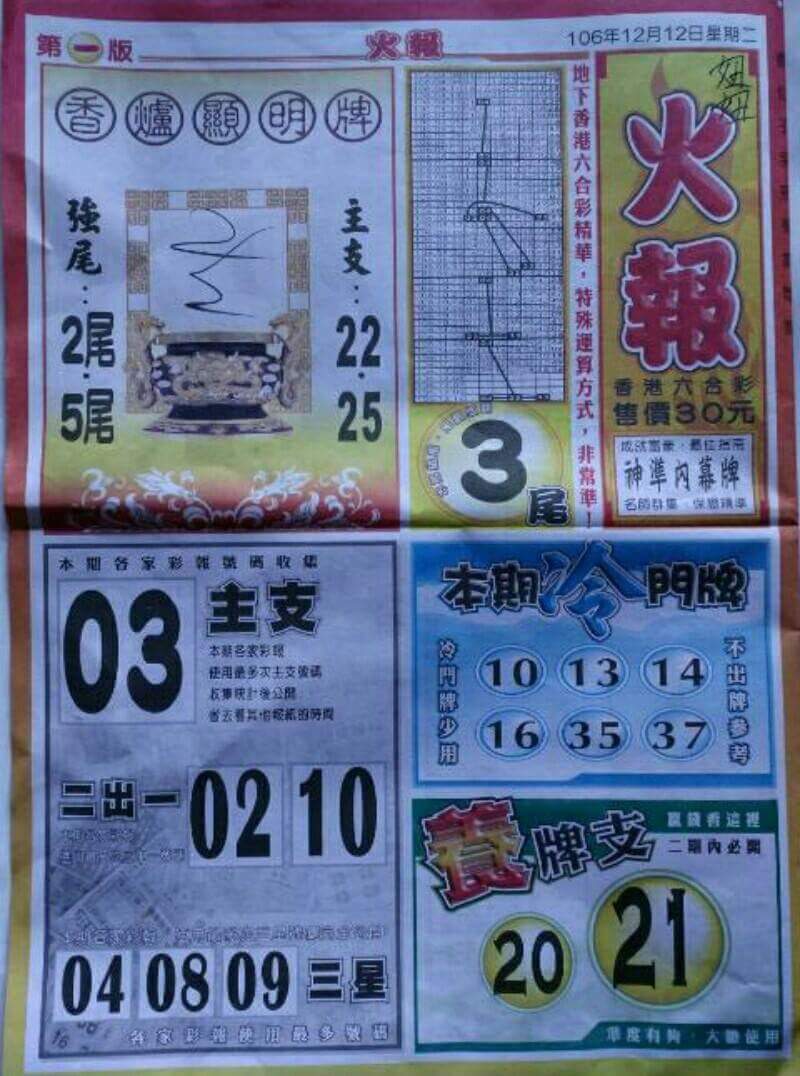 第一版
火報
106年12月12日星期二
香爐顯明牌
強尾：
2尾．
5尾
主支：
22．
25
3尾
地下香港六合彩精華，特殊運算方式，非常準！
妞妞
火報
香港六合彩
售價30元
神準內幕牌
本期各家彩報號碼收集
03
主支
本期各家彩報
使用最多次主支號碼
收集統計後公開
省去看其他報紙的時間
二出一
02
10
04
08
09
三星
各家彩報使用最多號碼
本期冷門牌
冷門牌少用
10 13 14
16 35 37
不出牌參考
養牌支
贏錢看這裡
二期內必開
20
21
準度有夠．大膽使用
16